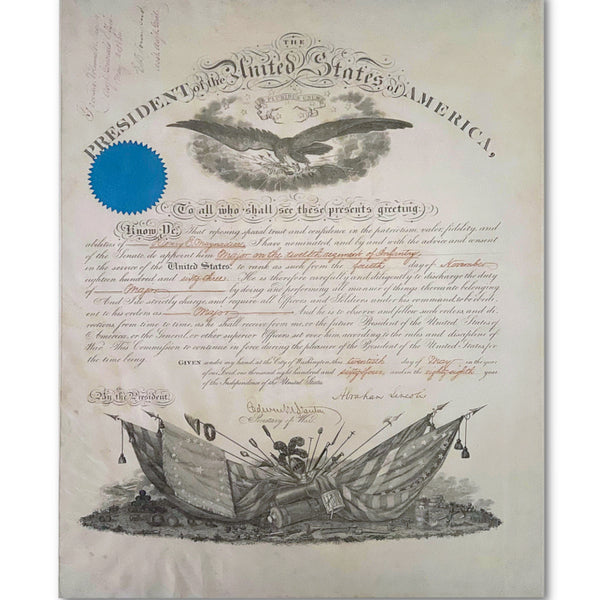 THE
PRESIDENT of the United States of AMERICA,
E PLURIBUS UNUM
To all who shall see these presents greeting:
Know Ye, That reposing special trust and confidence in the patriotism, valor, fidelity, and
abilities of Henry E. Maynadier I have nominated, and by and with the advice and consent
of the Senate do appoint him Major in the twelfth regiment of Infantry
in the service of the United States: to rank as such from the fourth day of November
eighteen hundred and sixty three. He is therefore carefully and diligently to discharge the duty
of Major by doing and performing all manner of things thereunto belonging.
And I do strictly charge, and require all Officers and Soldiers under his command to be obedi-
ent to his orders as Major. And he is to observe and follow such orders, and di-
rections, from time to time, as he shall receive from me, or the future President of the United States of
America, or the General, or other superior Officers set over him, according to the rules and discipline of
War. This Commission to continue in force during the pleasure of the President of the United States, for
the time being.
GIVEN under my hand, at the City of Washington, this twentieth day of May in the year
of our Lord, one thousand eight hundred and sixty four, and in the eighty eighth year
of the Independence of the United States.
By the President,
Abraham Lincoln
Edwin M Stanton
Secretary of War.